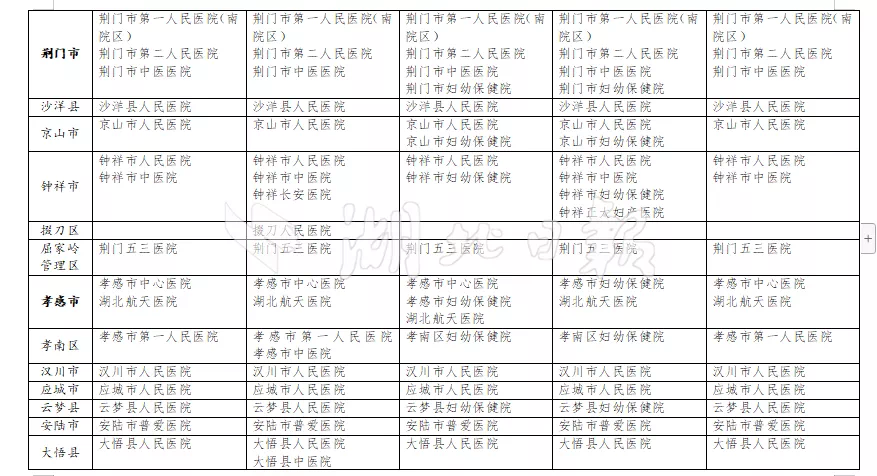 荆门市
荆门市第一人民医院(南
院区)
荆门市第二人民医院
荆门市中医医院
荆门市第一人民医院(南
院区)
荆门市第二人民医院
荆门市中医医院
荆门市第一人民医院(南
院区)
荆门市第二人民医院
荆门市中医医院
荆门市妇幼保健院
荆门市第一人民医院(南
院区)
荆门市第二人民医院
荆门市中医医院
荆门市妇幼保健院
荆门市第一人民医院(南
院区)
荆门市第二人民医院
荆门市中医医院
沙洋县
沙洋县人民医院
沙洋县人民医院
沙洋县人民医院
沙洋县人民医院
沙洋县人民医院
京山市
京山市人民医院
京山市人民医院
京山市人民医院
京山市妇幼保健院
京山市人民医院
京山市妇幼保健院
京山市人民医院
钟祥市
钟祥市人民医院
钟祥市中医院
钟祥市人民医院
钟祥市中医院
钟祥长安医院
钟祥市人民医院
钟祥市妇幼保健院
钟祥市人民医院
钟祥市中医院
钟祥市妇幼保健院
钟祥正大妇产医院
钟祥市人民医院
钟祥市中医院
掇刀区
掇刀人民医院
屈家岭
管理区
荆门五三医院
荆门五三医院
荆门五三医院
荆门五三医院
荆门五三医院
孝感市
孝感市中心医院
湖北航天医院
孝感市中心医院
湖北航天医院
孝感市中心医院
孝感市妇幼保健院
湖北航天医院
孝感市妇幼保健院
湖北航天医院
孝感市中心医院
湖北航天医院
孝南区
孝感市第一人民医院
孝感市第一人民医院
孝感市中医院
孝南区妇幼保健院
孝南区妇幼保健院
孝感市第一人民医院
汉川市
汉川市人民医院
汉川市人民医院
汉川市人民医院
汉川市人民医院
汉川市人民医院
应城市
应城市人民医院
应城市人民医院
应城市人民医院
应城市人民医院
应城市人民医院
云梦县
云梦县人民医院
云梦县人民医院
云梦县妇幼保健院
云梦县妇幼保健院
云梦县人民医院
安陆市
安陆市普爱医院
安陆市普爱医院
安陆市普爱医院
安陆市普爱医院
安陆市普爱医院
大悟县
大悟县人民医院
大悟县人民医院
大悟县中医院
大悟县人民医院
大悟县人民医院
大悟县人民医院
湖北日报